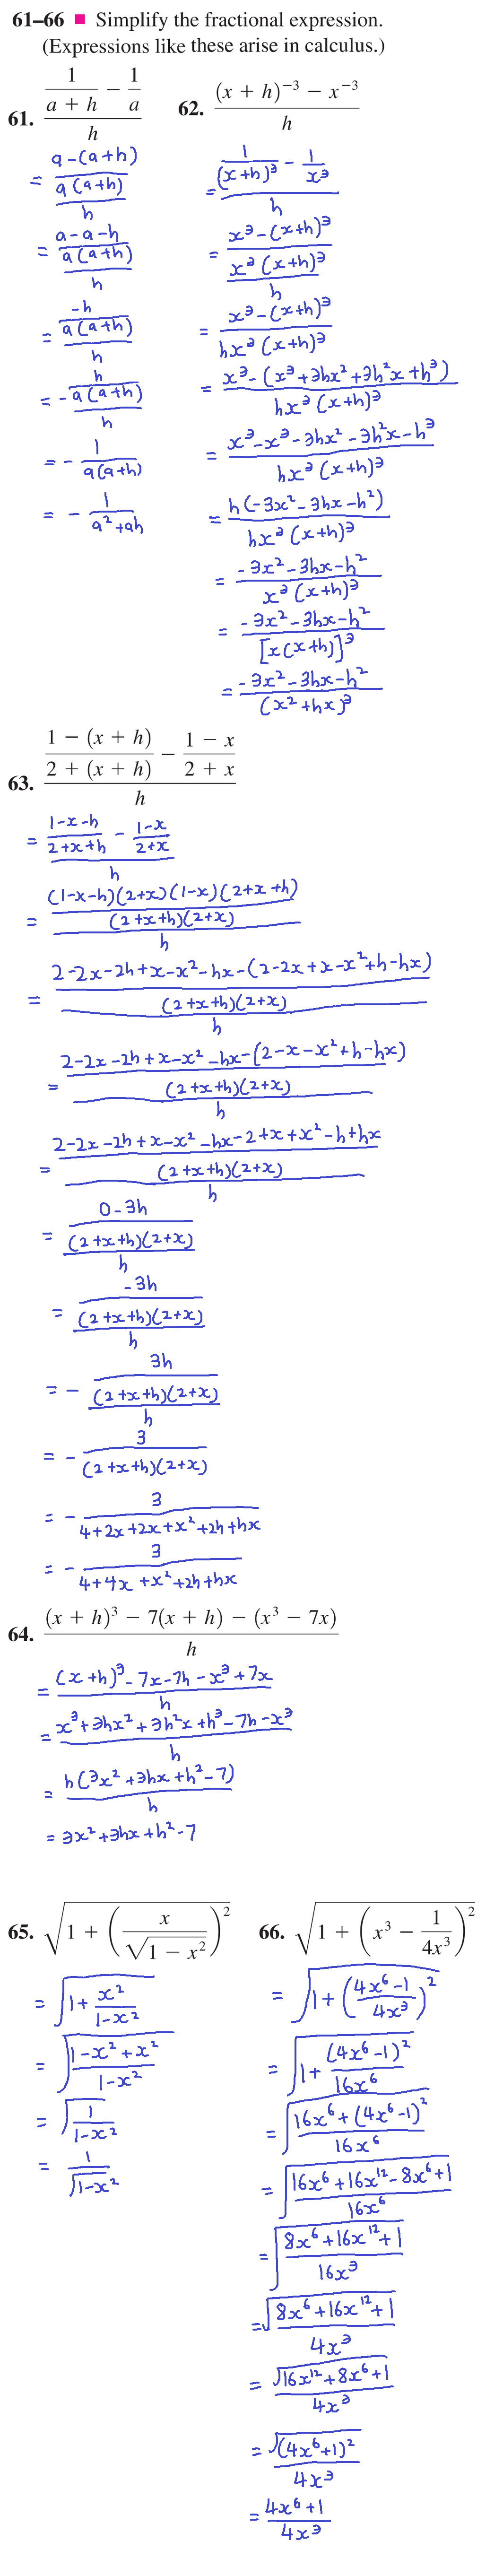 61–66 ■ Simplify the fractional expression.
(Expressions like these arise in calculus.)
61. (1/(a + h) − 1/a)/h
= ((a-(a+h))/(a(a+h)))/h
= ((a-a-h)/(a(a+h)))/h
= (-h/(a(a+h)))/h
= -(h/(a(a+h)))/h
= - 1/(a(a+h))
= - 1/(a²+ah)
62. ((x + h)⁻³ − x⁻³)/h
= (1/(x+h)³ - 1/x³)/h
= ((x³-(x+h)³)/(x³(x+h)³))/h
= (x³-(x+h)³)/(hx³(x+h)³)
= (x³-(x³+3hx²+3h²x+h³))/(hx³(x+h)³)
= (x³-x³-3hx²-3h²x-h³)/(hx³(x+h)³)
= h(-3x²-3hx-h²)/(hx³(x+h)³)
= (-3x²-3hx-h²)/(x³(x+h)³)
= (-3x²-3hx-h²)/[x(x+h)]³
= (-3x²-3hx-h²)/(x²+hx)³
63. ((1 − (x + h))/(2 + (x + h)) − (1 − x)/(2 + x))/h
= ((1-x-h)/(2+x+h) - (1-x)/(2+x))/h
= ((1-x-h)(2+x)(1-x)(2+x+h)/((2+x+h)(2+x)))/h
= ((2-2x-2h+x-x²-hx-(2-2x+x-x²+h-hx))/((2+x+h)(2+x)))/h
= ((2-2x-2h+x-x²-hx-(2-x-x²+h-hx))/((2+x+h)(2+x)))/h
= ((2-2x-2h+x-x²-hx-2+x+x²-h+hx)/((2+x+h)(2+x)))/h
= ((0-3h)/((2+x+h)(2+x)))/h
= (-3h/((2+x+h)(2+x)))/h
= - (3h/((2+x+h)(2+x)))/h
= - 3/((2+x+h)(2+x))
= - 3/(4+2x+2x+x²+2h+hx)
= - 3/(4+4x+x²+2h+hx)
64. ((x + h)³ − 7(x + h) − (x³ − 7x))/h
= ((x+h)³-7x-7h-x³+7x)/h
= (x³+3hx²+3h²x+h³-7h-x³)/h
= h(3x²+3hx+h²-7)/h
= 3x²+3hx+h²-7
65. √(1 + (x/√(1 − x²))²)
= √(1+x²/(1-x²))
= √((1-x²+x²)/(1-x²))
= √(1/(1-x²))
= 1/√(1-x²)
66. √(1 + (x³ − 1/(4x³))²)
= √(1+((4x⁶-1)/(4x³))²)
= √(1+(4x⁶-1)²/(16x⁶))
= √((16x⁶+(4x⁶-1)²)/(16x⁶))
= √((16x⁶+16x¹²-8x⁶+1)/(16x⁶))
= √((8x⁶+16x¹²+1)/(16x³))
= √(8x⁶+16x¹²+1)/(4x³)
= √(16x¹²+8x⁶+1)/(4x³)
= √((4x⁶+1)²)/(4x³)
= (4x⁶+1)/(4x³)